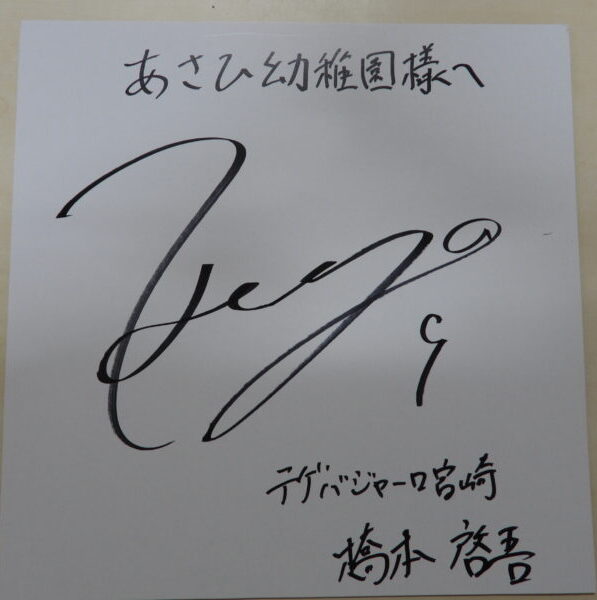 あさひ幼稚園様へ
Keigo
9
テゲバジャーロ宮崎
橋本 啓吾